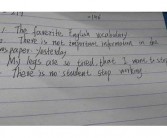 1. The favorite English vocabulary
2. There is not important information in
newspaper yesterday.
My legs are so tired that I want to
There is no student stop writing